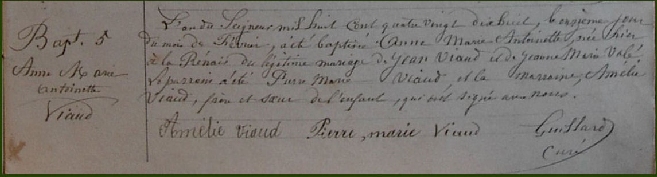 Bapt. 5
Anne Marie
Antoinette
Viaud
L'an du Seigneur mil huit cent quatre vingt dix huit, le onzième jour
du mois de Février, a été baptisée Anne Marie Antoinette, née hier
à la Renais du légitime mariage de Jean Viaud et de Jeanne Marie
Le parrain a été Pierre Marie Viaud et la marraine, Amélie
Viaud, frère et sœur de l'enfant, qui ont signé avec nous.
Amélie Viaud Pierre, marie Viaud Guillard
Curé